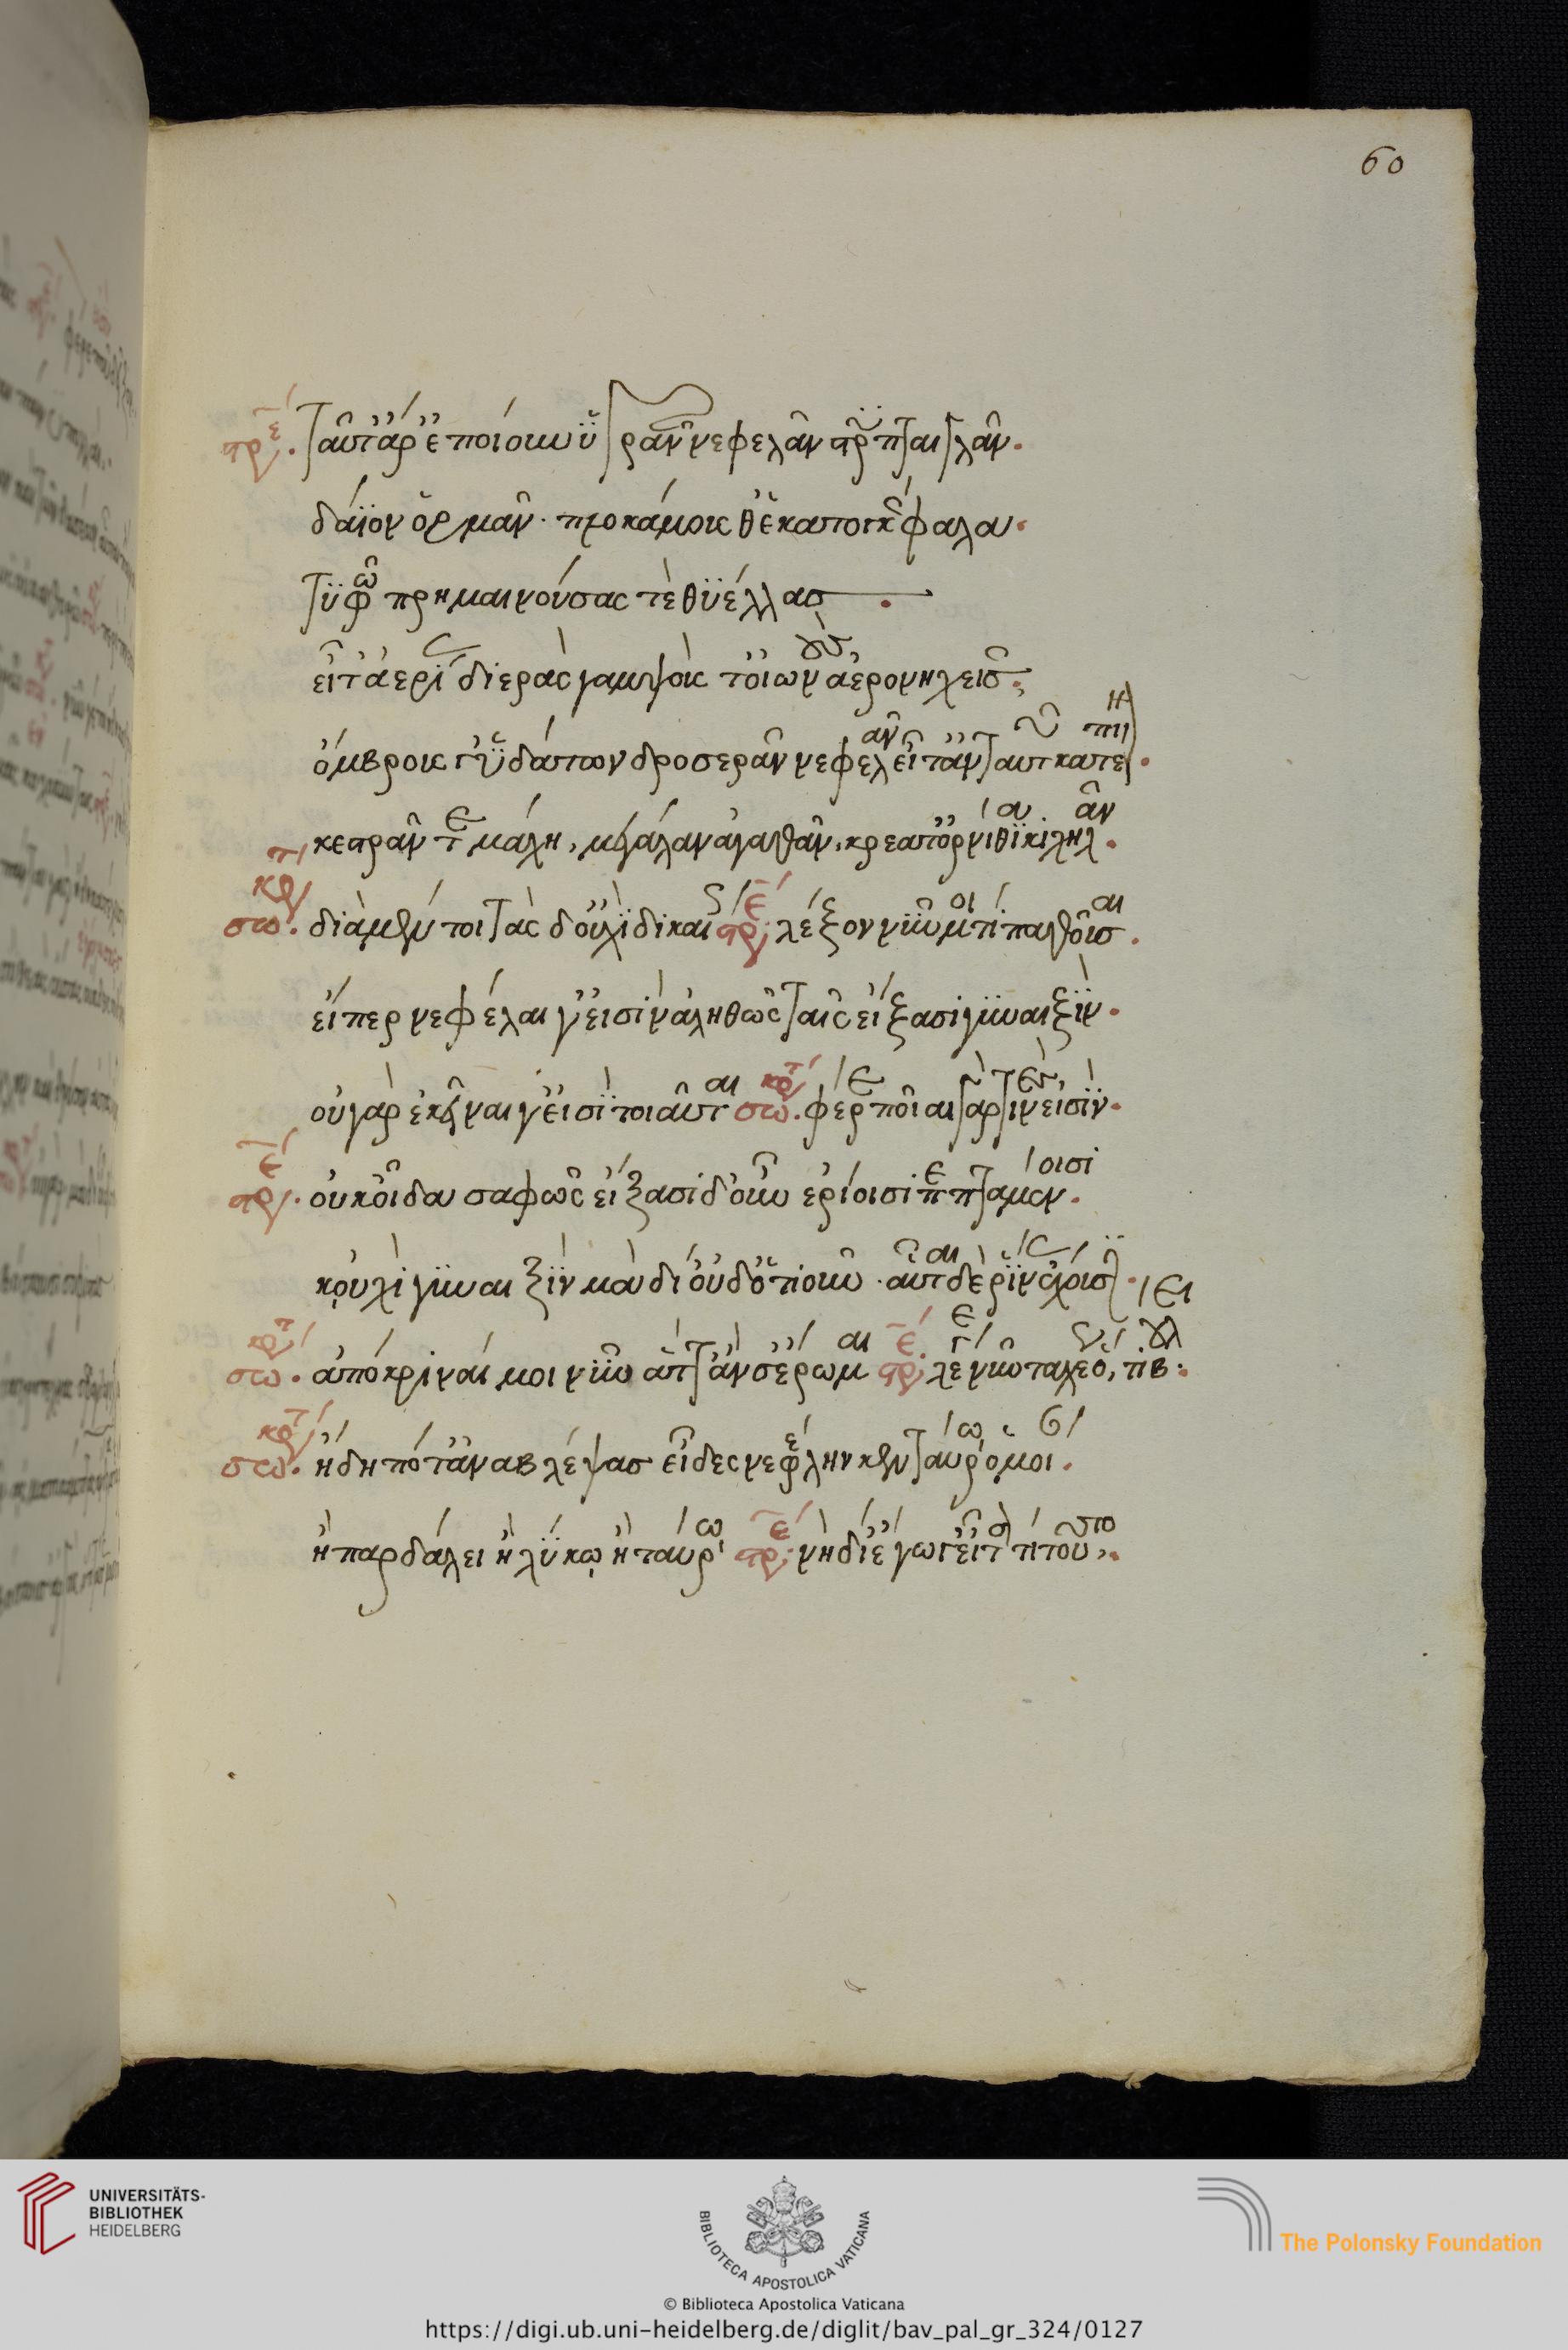 60
πρε. ταῦτ' ἄρ' ἐποίουν ὑγρᾶν νεφελᾶν στρεπταιγλᾶν.
δάϊον ὁρμᾶν. πλοκάμους θ' ἑκατογκεφάλα
τυφῶ πρημαινούσας τὲ θυέλλας.
εἶτ' ἀερίας διερὰς γαμψοὺς τ' οἰωνοὺς ἀερονηχεῖς.
ὄμβρους θ' ὑδάτων δροσερᾶν νεφελᾶν εἶτ' ἀντ' αὐτῶν κατέπιν
κεστρᾶν τεμάχη, μεγάλαν ἀγαθᾶν, κρέα τ' ὀρνίθια κιχηλᾶν.
στρ. σω. διὰ μέντοι τάσδ' οὐχὶ δικαίως πρε. λέξον νῦν μοι τί παθοῦσαι.
εἴπερ νεφέλαι γ' εἰσὶν ἀληθῶς ταῖς εἴξασι γυναιξίν.
οὐ γὰρ ἐκεῖναι γ' εἰσὶ τοιαῦται στρ. σω. φέρε ποῖαι γάρ τινες εἰσίν.
πρε. οὐκ οἶδα σαφῶς εἴξασι δ' οὖν ἐρίοισι πεπταμένοισι
κοὐχὶ γυναιξὶν μὰ δί' οὐδ' ὁτιοῦν. αὗται δὲ ῥῖνας ἔχουσι.
στρ. σω. ἀπόκριναί μοι νῦν ἅττ' ἂν σ' ἔρωμαι πρε. λέγε νῦν ταχέως, τί βούλει
στρ. σω. ἤδη πότ' ἀναβλέψας εἶδες νεφέλην κενταύρῳ ὁμοίαν.
ἢ παρδάλει ἢ λύκῳ ἢ ταύρῳ πρε. νὴ δί' ἔγωγ' εἶτα τί τοῦτο.
UNIVERSITÄTS-
BIBLIOTHEK
HEIDELBERG
BIBLIOTECA APOSTOLICA VATICANA
The Polonsky Foundation
© Biblioteca Apostolica Vaticana
https://digi.ub.uni-heidelberg.de/diglit/bav_pal_gr_324/0127